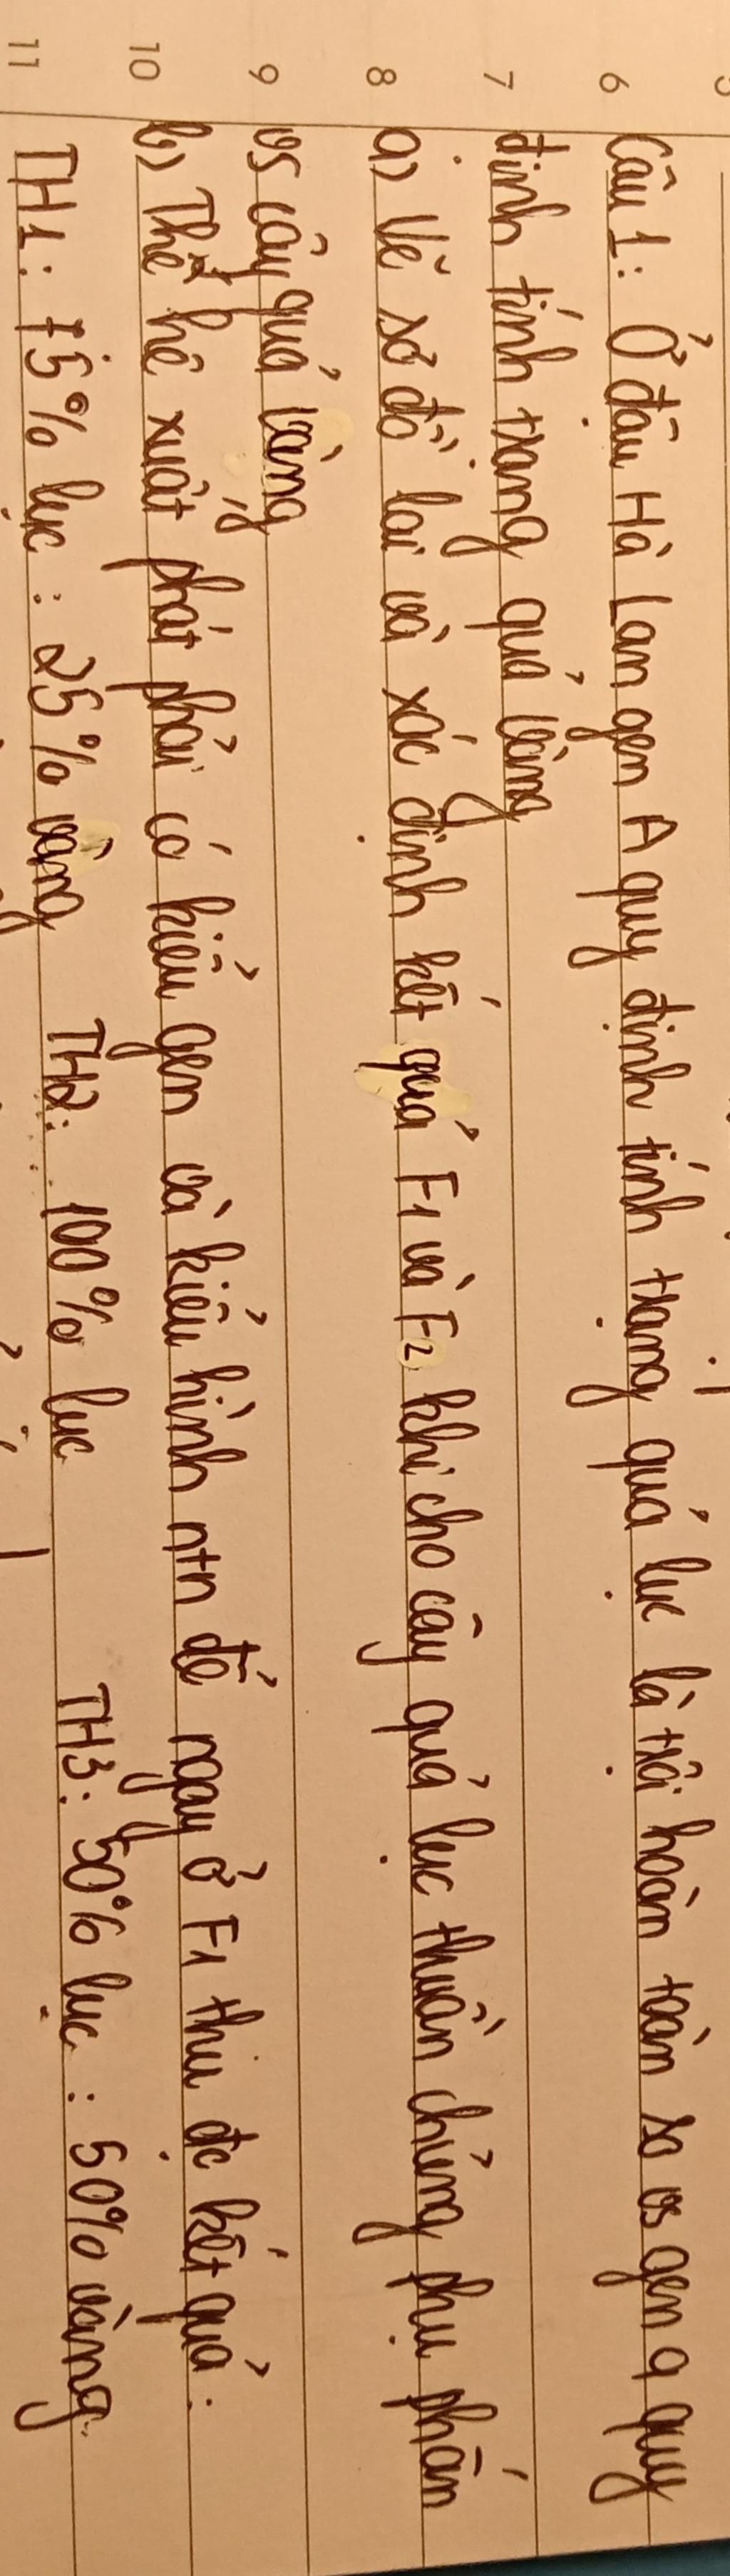 6 Câu 1: Ở đậu Hà Lan gen A quy định tính trạng quả lục là trội hoàn toàn so vs gen a quy
7 định tính trạng quả vàng
8 a) Vẽ sơ đồ lai và xác định kết quả F1 và F2 khi cho cây quả lục thuần chủng thụ phấn
9 vs cây quả vàng
10 b) Thế hệ xuất phát phải có kiểu gen và kiểu hình ntn để ngay ở F1 thu đc kết quả:
11 TH1: 75% lục : 25% vàng TH2: 100% lục TH3: 50% lục : 50% vàng